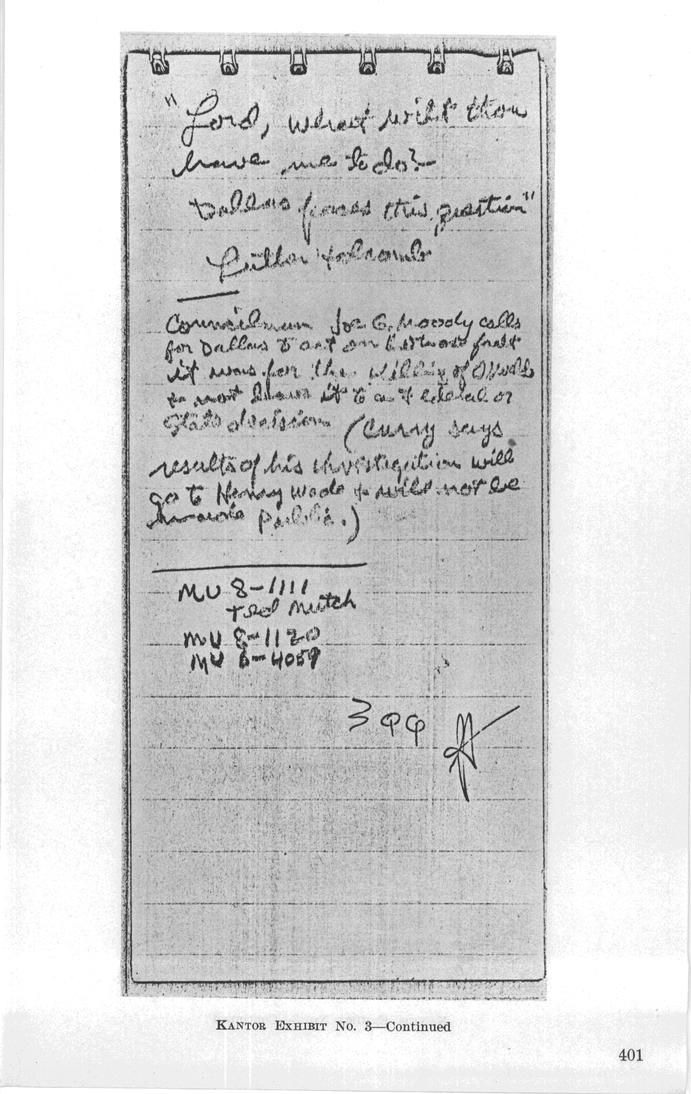 "Lord, what wilt thou
have me to do?—
Dallas faces this question"
Luther Holcomb
Councilman Joe G. Moody calls
for Dallas to act on whose fault
it was for the killing of Oswald
& not leave it to a federal or
State decision (Curry says
results of his investigation will
go to Henry Wade & will not be
made public.)
MU 8-1111
Ted Mutch
MU 8-1120
MU 6-4059
399
KANTOR EXHIBIT No. 3—Continued
401